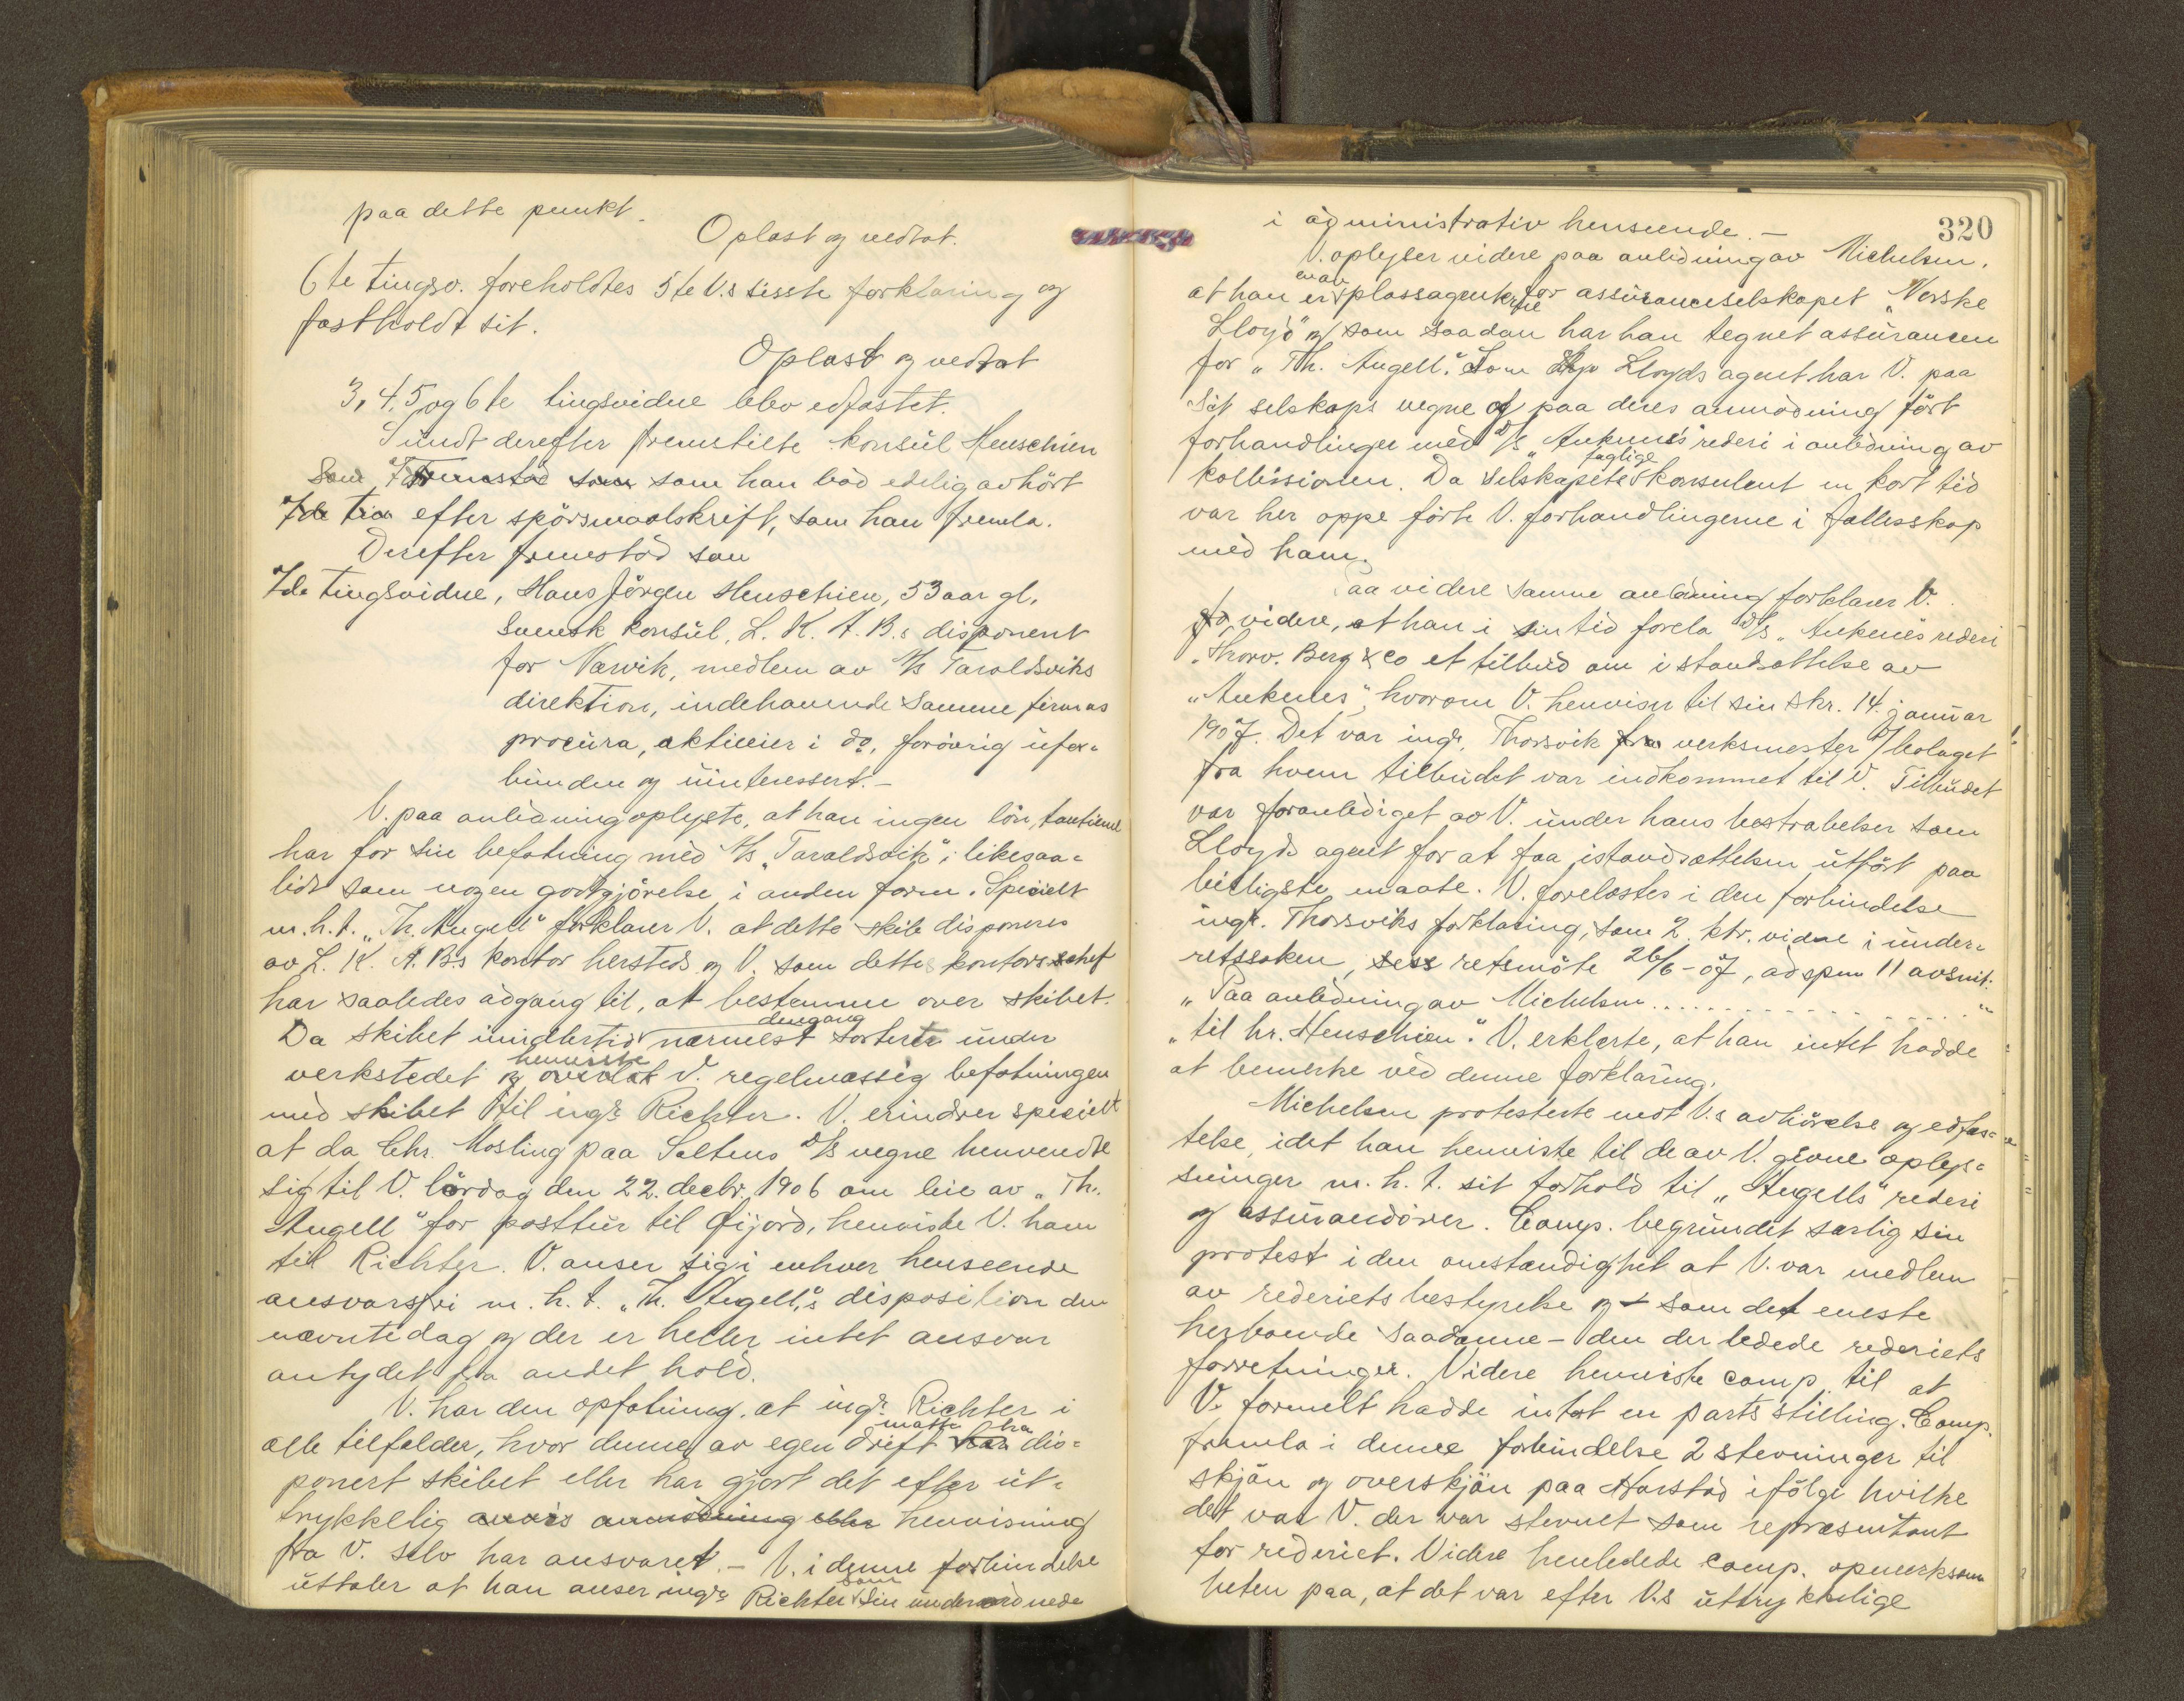 paa dette punkt.
Oplæst og vedtat.
6te tingsv. foreholdtes 5te V.s sisste forklaring og
fastholdt sit.
Oplæst og vedtat
3, 4, 5 og 6te tingsvidne blev edfæstet.
Sundt derefter fremstilte konsul Henschien
som han bød edelig avhørt
efter spörsmaalskrift, som han fremla.
Derefter fremstod som
7de tingsvidne, Hans Jörgen Henschien, 53 aar gl.
svensk konsul, L. K. A. B.s disponent
for Narvik, medlem av A/s Taraldsviks
direktion, indehavende samme firmas
procura, aktieeier i do, forövrig ufor-
bunden og uinteressert. -
V. paa anledning oplyste, at han ingen lön, tantieme
har for sin befatning med A/s "Taraldsvik"; likesaa-
lidt som nogen godtgjörelse i anden form. Specielt
m.h.t. "Th. Angell" forklarer V. at dette skib disponeres
av L. K. A. B.s kontor hersteds og V. som dette kontors schef
har saaledes adgang til, at bestemme over skibet.
Da skibet imidlertid dengang nærmest sorterte under
verkstedet og henviste V. regelmæssig befatningen
med skibet til ingr Richter. V. erindrer specielt
at da Chr. Mosling paa Saltens D/s vegne henvendte
sig til V. lördag den 22. decbr. 1906 om leie av "Th.
Angell" for posttur til Gijord, henviste V. ham
til Richter. V. anser sig i enhver henseende
ansvarsfri m. h. t. "Th. Angell"s disposition den
nævnte dag og der er heller intet ansvar
antydet fra andet hold.
V. har den opfatning, at ingr Richter i
alle tilfælder, hvor denne av egen drift maatte ha dis-
ponert skibet eller har gjort det efter ut-
trykkelig henvisning
fra V. selv har ansvaret. - V. i denne forbindelse
uttaler at han anser ingr Richter som sin underordnede
320
i administrativ henseende. -
V. oplyser videre paa anledning av Michelsen,
at han er en av plassagenterne for assuranceselskapet "Norske
Lloyd" og som saadan har han tegnet assurancen
for "Th. Angell". Som Lloyds agent har V. paa
sit selskaps vegne og paa deres anmodning fört
forhandlinger med D/s "Ankenes" rederi i anledning av
kollisionen. Da selskapets faglige konsulent en kort tid
var her oppe förte V. forhandlingerne i fællesskap
med ham.
Paa videre samme anledning forklarer V.
videre, at han i sin tid forela D/s "Ankenes rederi
Thorv. Berg & Co et tilbud om istandsættelse av
"Ankenes", hvorom V. henviser til sin skr. 14. januar
1907. Det var ingr. Thorsvik verksmester
fra hvem tilbudet var indkommet til V. Tilbudet
var foranlediget av V. under hans bestræbelser som
Lloyds agent for at faa istandsættelsen utfört paa
billigste maate. V. forelæstes i den forbindelse
ingr. Thorsviks forklaring, som 2. ktr. vidne i under-
retssaken, retsmöte 26/6-07, ad spm 11 avsnit.
"Paa anledning av Michelsen . . . . . . . . . . . .
"til hr. Henschien". V. erklærte, at han intet hadde
at bemerke ved denne forklaring.
Michelsen protesterte mot V.s avhörelse og edfæs-
telse, idet han henviste til de av V. givne oplys-
ninger m. h. t. sit forhold til "Angells" rederi
og assurandörer. Comp. begrundet særlig sin
protest i den omstændighet at V. var medlem
av rederiets bestyrelse og - som det eneste
herboende saadanne - den der ledede rederiets
forretninger. Videre henviste comp. til at
V. formelt hadde intat en parts stilling. Comp.
fremla i denne forbindelse 2 stevninger til
skjön og overskjön paa Harstad ifölge hvilke
det var V. der var stevnet som representant
for rederiet. Videre henledede comp. opmerksom
heten paa, at det var efter V.s uttrykkelige